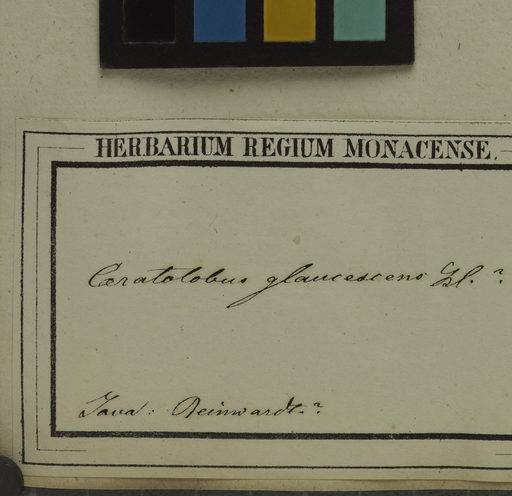 HERBARIUM REGIUM MONACENSE.
Ceratolobus glaucescens Bl. ?
Java: Reinwardt. ?